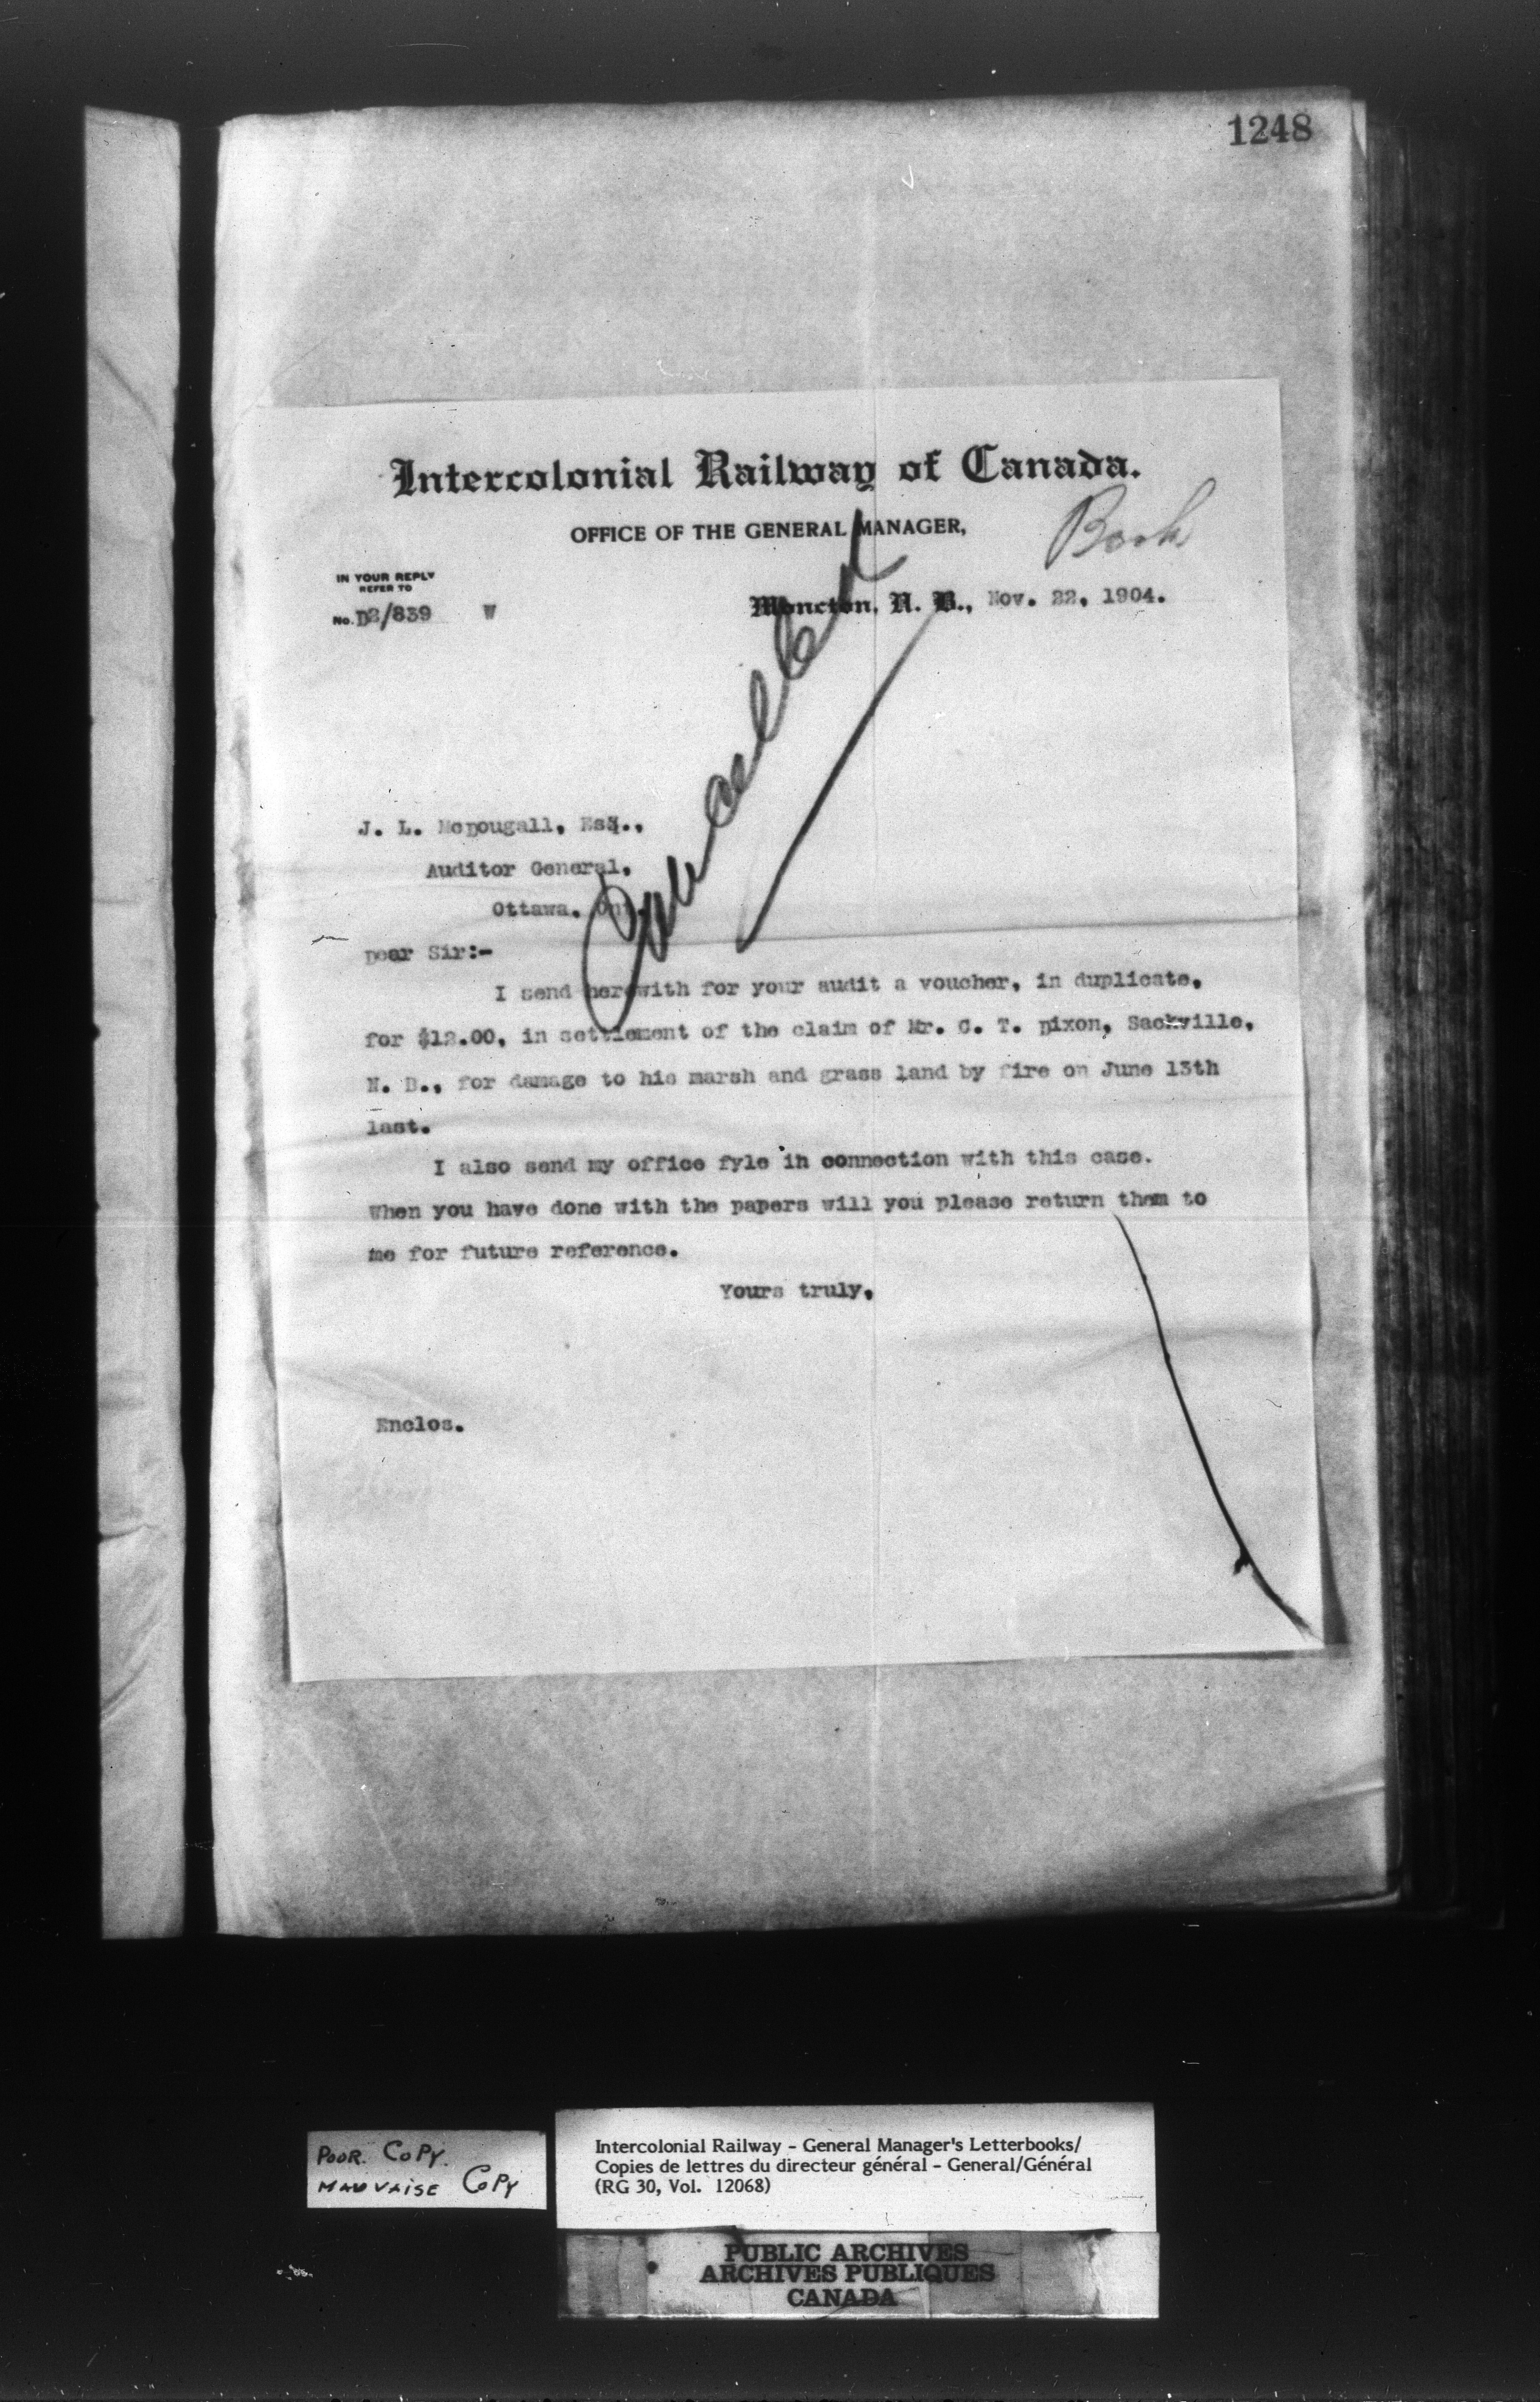 1248
Intercolonial Railway of Canada.
OFFICE OF THE GENERAL MANAGER,
Book
IN YOUR REPLY
REFER TO
No. D2/839 W
Moncton, N. B., Nov. 22, 1904.
Cancelled
J. L. McDougall, Esq.,
Auditor General,
Ottawa. Ont.
Dear Sir:-
I send herewith for your audit a voucher, in duplicate,
for $12.00, in settlement of the claim of Mr. C. T. Dixon, Sackville,
N. B., for damage to his marsh and grass land by fire on June 13th
last.
I also send my office fyle in connection with this case.
When you have done with the papers will you please return them to
me for future reference.
Yours truly,
Enclos.
POOR. COPY.
MAUVAISE COPY
Intercolonial Railway - General Manager's Letterbooks/
Copies de lettres du directeur général - General/Général
(RG 30, Vol. 12068)
PUBLIC ARCHIVES
ARCHIVES PUBLIQUES
CANADA